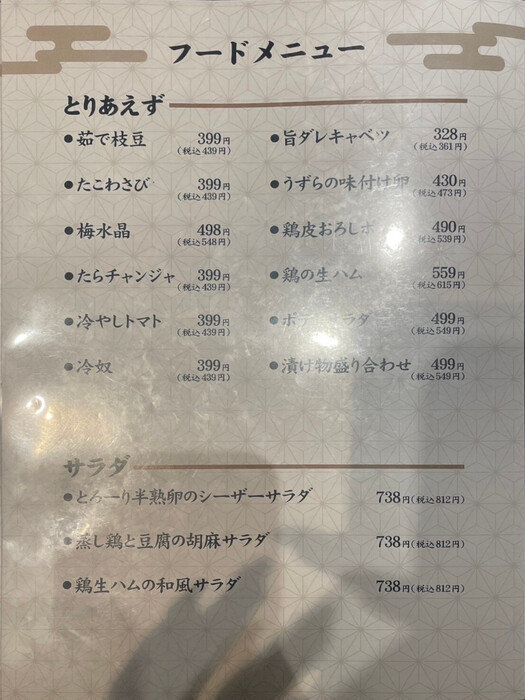 フードメニュー
とりあえず
●茹で枝豆 399円
(税込439円)
●たこわさび 399円
(税込439円)
●梅水晶 498円
(税込548円)
●たらチャンジャ 399円
(税込439円)
●冷やしトマト 399円
(税込439円)
●冷奴 399円
(税込439円)
●旨ダレキャベツ 328円
(税込361円)
●うずらの味付け卵 430円
(税込473円)
●鶏皮おろしポ 490円
(税込539円)
●鶏の生ハム 559円
(税込615円)
●ポテトサラダ 499円
(税込549円)
●漬け物盛り合わせ 499円
(税込549円)
サラダ
●とろーり半熟卵のシーザーサラダ 738円(税込812円)
●蒸し鶏と豆腐の胡麻サラダ 738円(税込812円)
●鶏生ハムの和風サラダ 738円(税込812円)